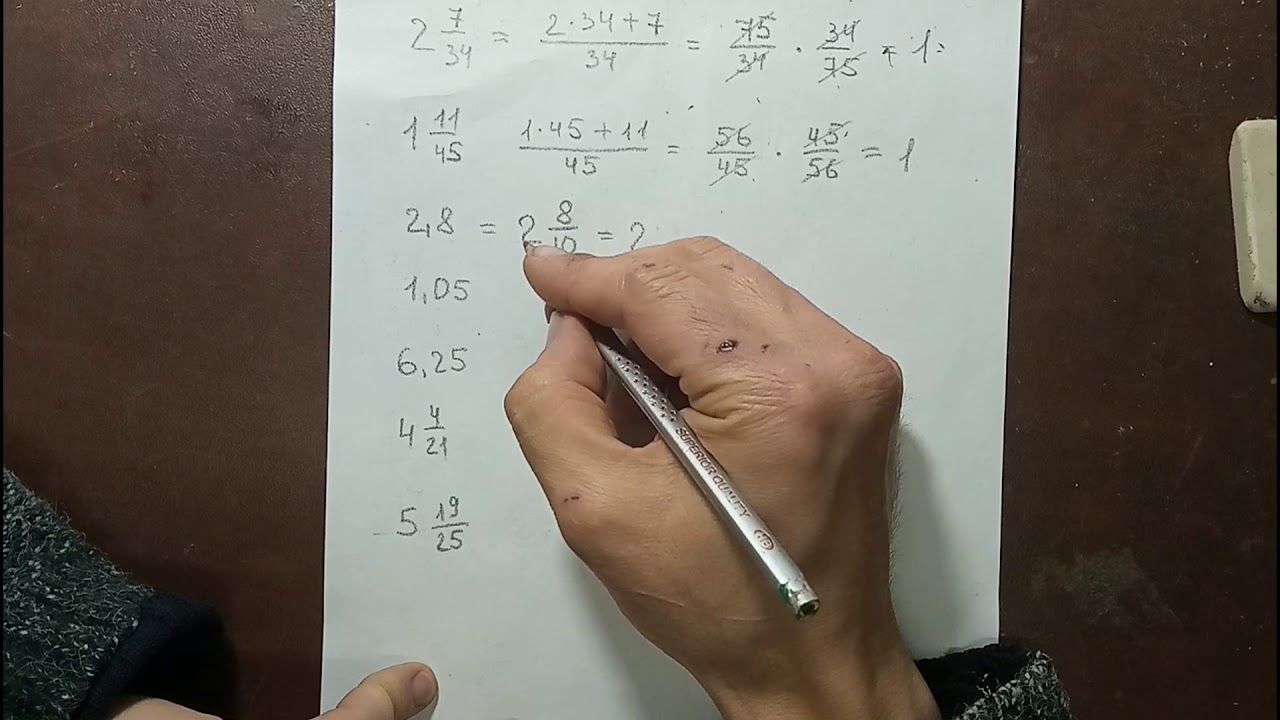 2 7/34 = (2·34+7)/34 = 75/34 · 34/75 = 1
1 11/45 (1·45+11)/45 = 56/45 · 45/56 = 1
2,8 = 2 8/10 = 2
1,05
6,25
4 4/21
5 19/25
SUPERIOR QUALITY HB